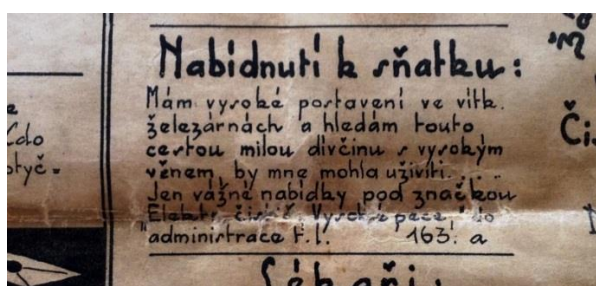 Nabídnutí k sňatku:
Mám vysoké postavení ve vítk.
železárnách a hledám touto
cestou milou divčinu s vysokým
věnem, by mne mohla uživiti. . . .
Jen vážné nabídky pod značkou
Elektr. čistič Vysoké pece" do
"administrace t.l. 163. a
Lékaři:
e
do
otyč-
Či